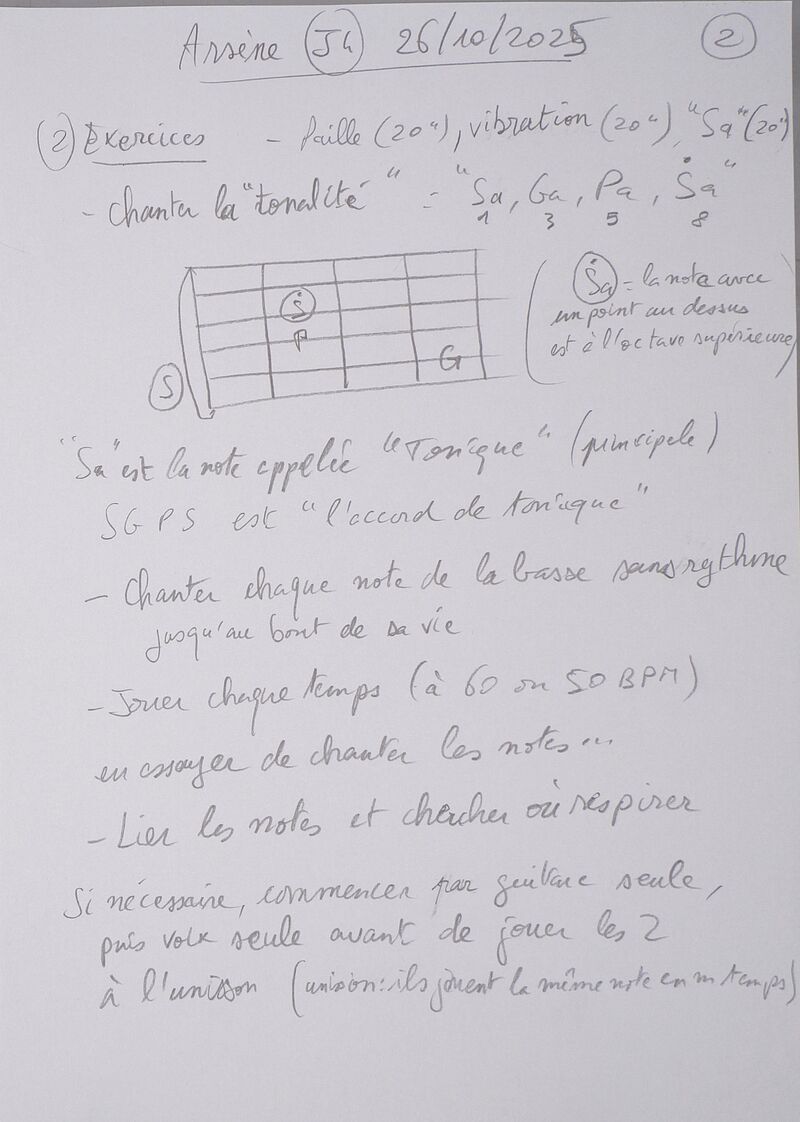 Arsène J4 26/10/2025 2
2 Exercices - Paille (20"), vibration (20"), "Sa" (20")
- Chanter la "tonalité" = "Sa, Ga, Pa, Ṡa"
1 3 5 8
Ṡa = la note avec
un point au dessus
est à l'octave supérieure
Ṡ
P
G
S
"Sa" est la note appelée "Tonique" (principale)
S G P S est "l'accord de tonique"
- Chanter chaque note de la basse sans rythme
jusqu'au bout de sa vie
- Jouer chaque temps (à 60 ou 50 BPM)
en essayer de chanter les notes...
- Lier les notes et chercher où respirer
Si nécessaire, commencer par guitare seule,
puis voix seule avant de jouer les 2
à l'unisson (unision: ils jouent la même note en m temps)